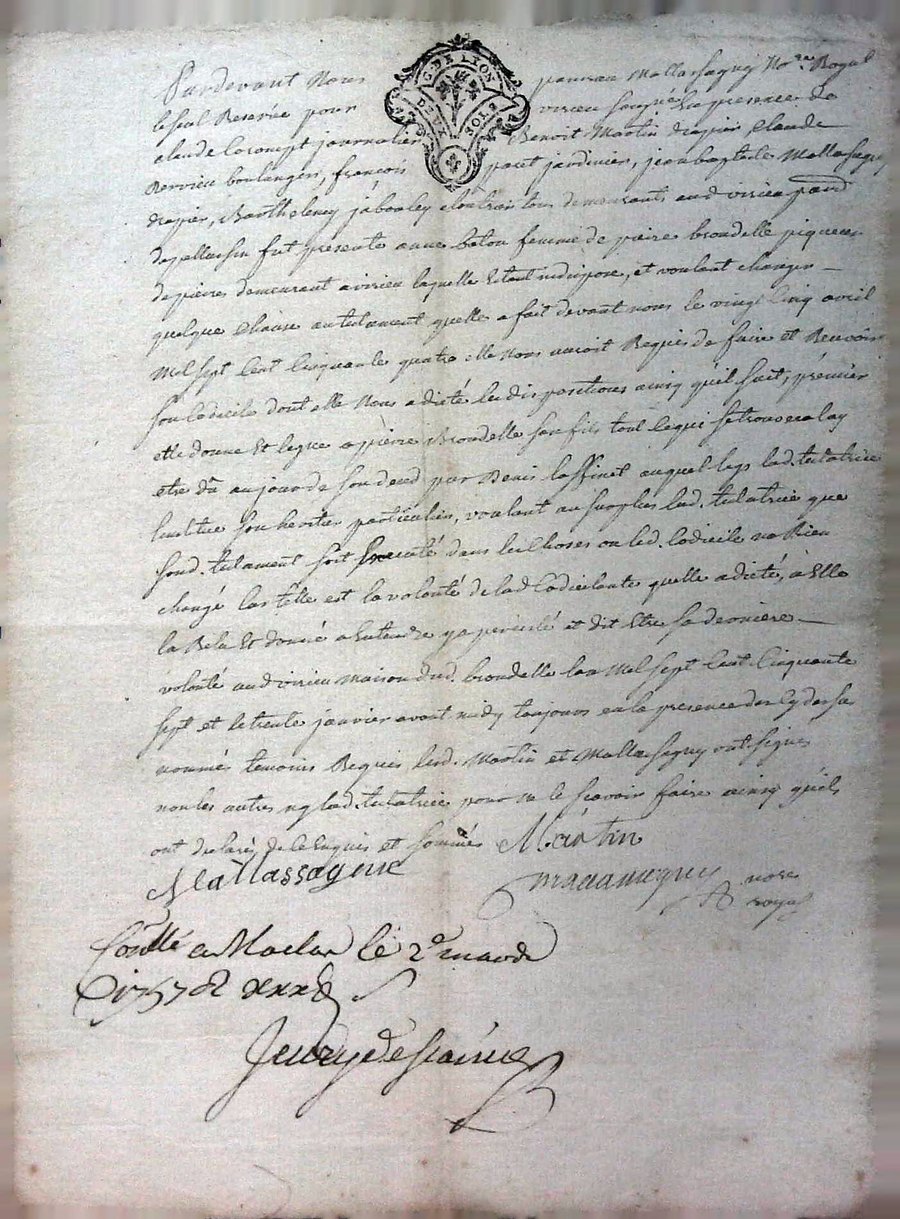 G. DE LYON
DEUX SOLS
Pardevant Nous Mallassagny No.re Royal
le seul Reservée pour virieu sougné en presence de
claude lacompt journalier Benoit Martin drapier claude
Rervieu boulanger, françois paret jardinier, jean baptiste Mallassagny
drapier, Barthelemy jabouley tous demeurants aud virieu parr
de pellussin fut presente anne baton femme de pierre brondelle piqueur
de pierres demeurant a virieu laquelle Etant indispose, et voulant changer
quelque Chause au testament quelle a fait devant nous le vingt cinq avril
Mil sept cent Cinquante quatre elle Nous auroit Requis de faire et Recevoir
son Codicile dont elle Nous a dicté les dispositions ainsy qu'il suit, prémier
elle donne Et legue a pierre Brondelle son fils tout ce qui se trousera luy
etre dû au jour de son deced par Denis laffinet auquel legs lad. testatrice
linstitue son heritier particulier, voulant au surplus lad. testatrice que
sond. testament soit Executé dans les Choses ou led. Codicile na Rien
changé Car telle est la volonté de lad Codicilante quelle a dicté, a Elle
la Relu Et donné a Entendre y a persisté et dit Etre sa derniere
volonté aud virieu maison dud. brondelle lan Mil sept Cent Cinquante
sept et le trente janvier avant midy toujours en la presence des cy dessus
nommé temoins Requis lesd. Martin et Mallassagny ont signés
non les autres ny lad. testatrice pour ne le sçavoir faire ainsy qu'ils
ont declaré de ce Enquis et sommés Martin
Mallassagnie
nore
royal
Con.llé a Maclas le 2e mars
1757